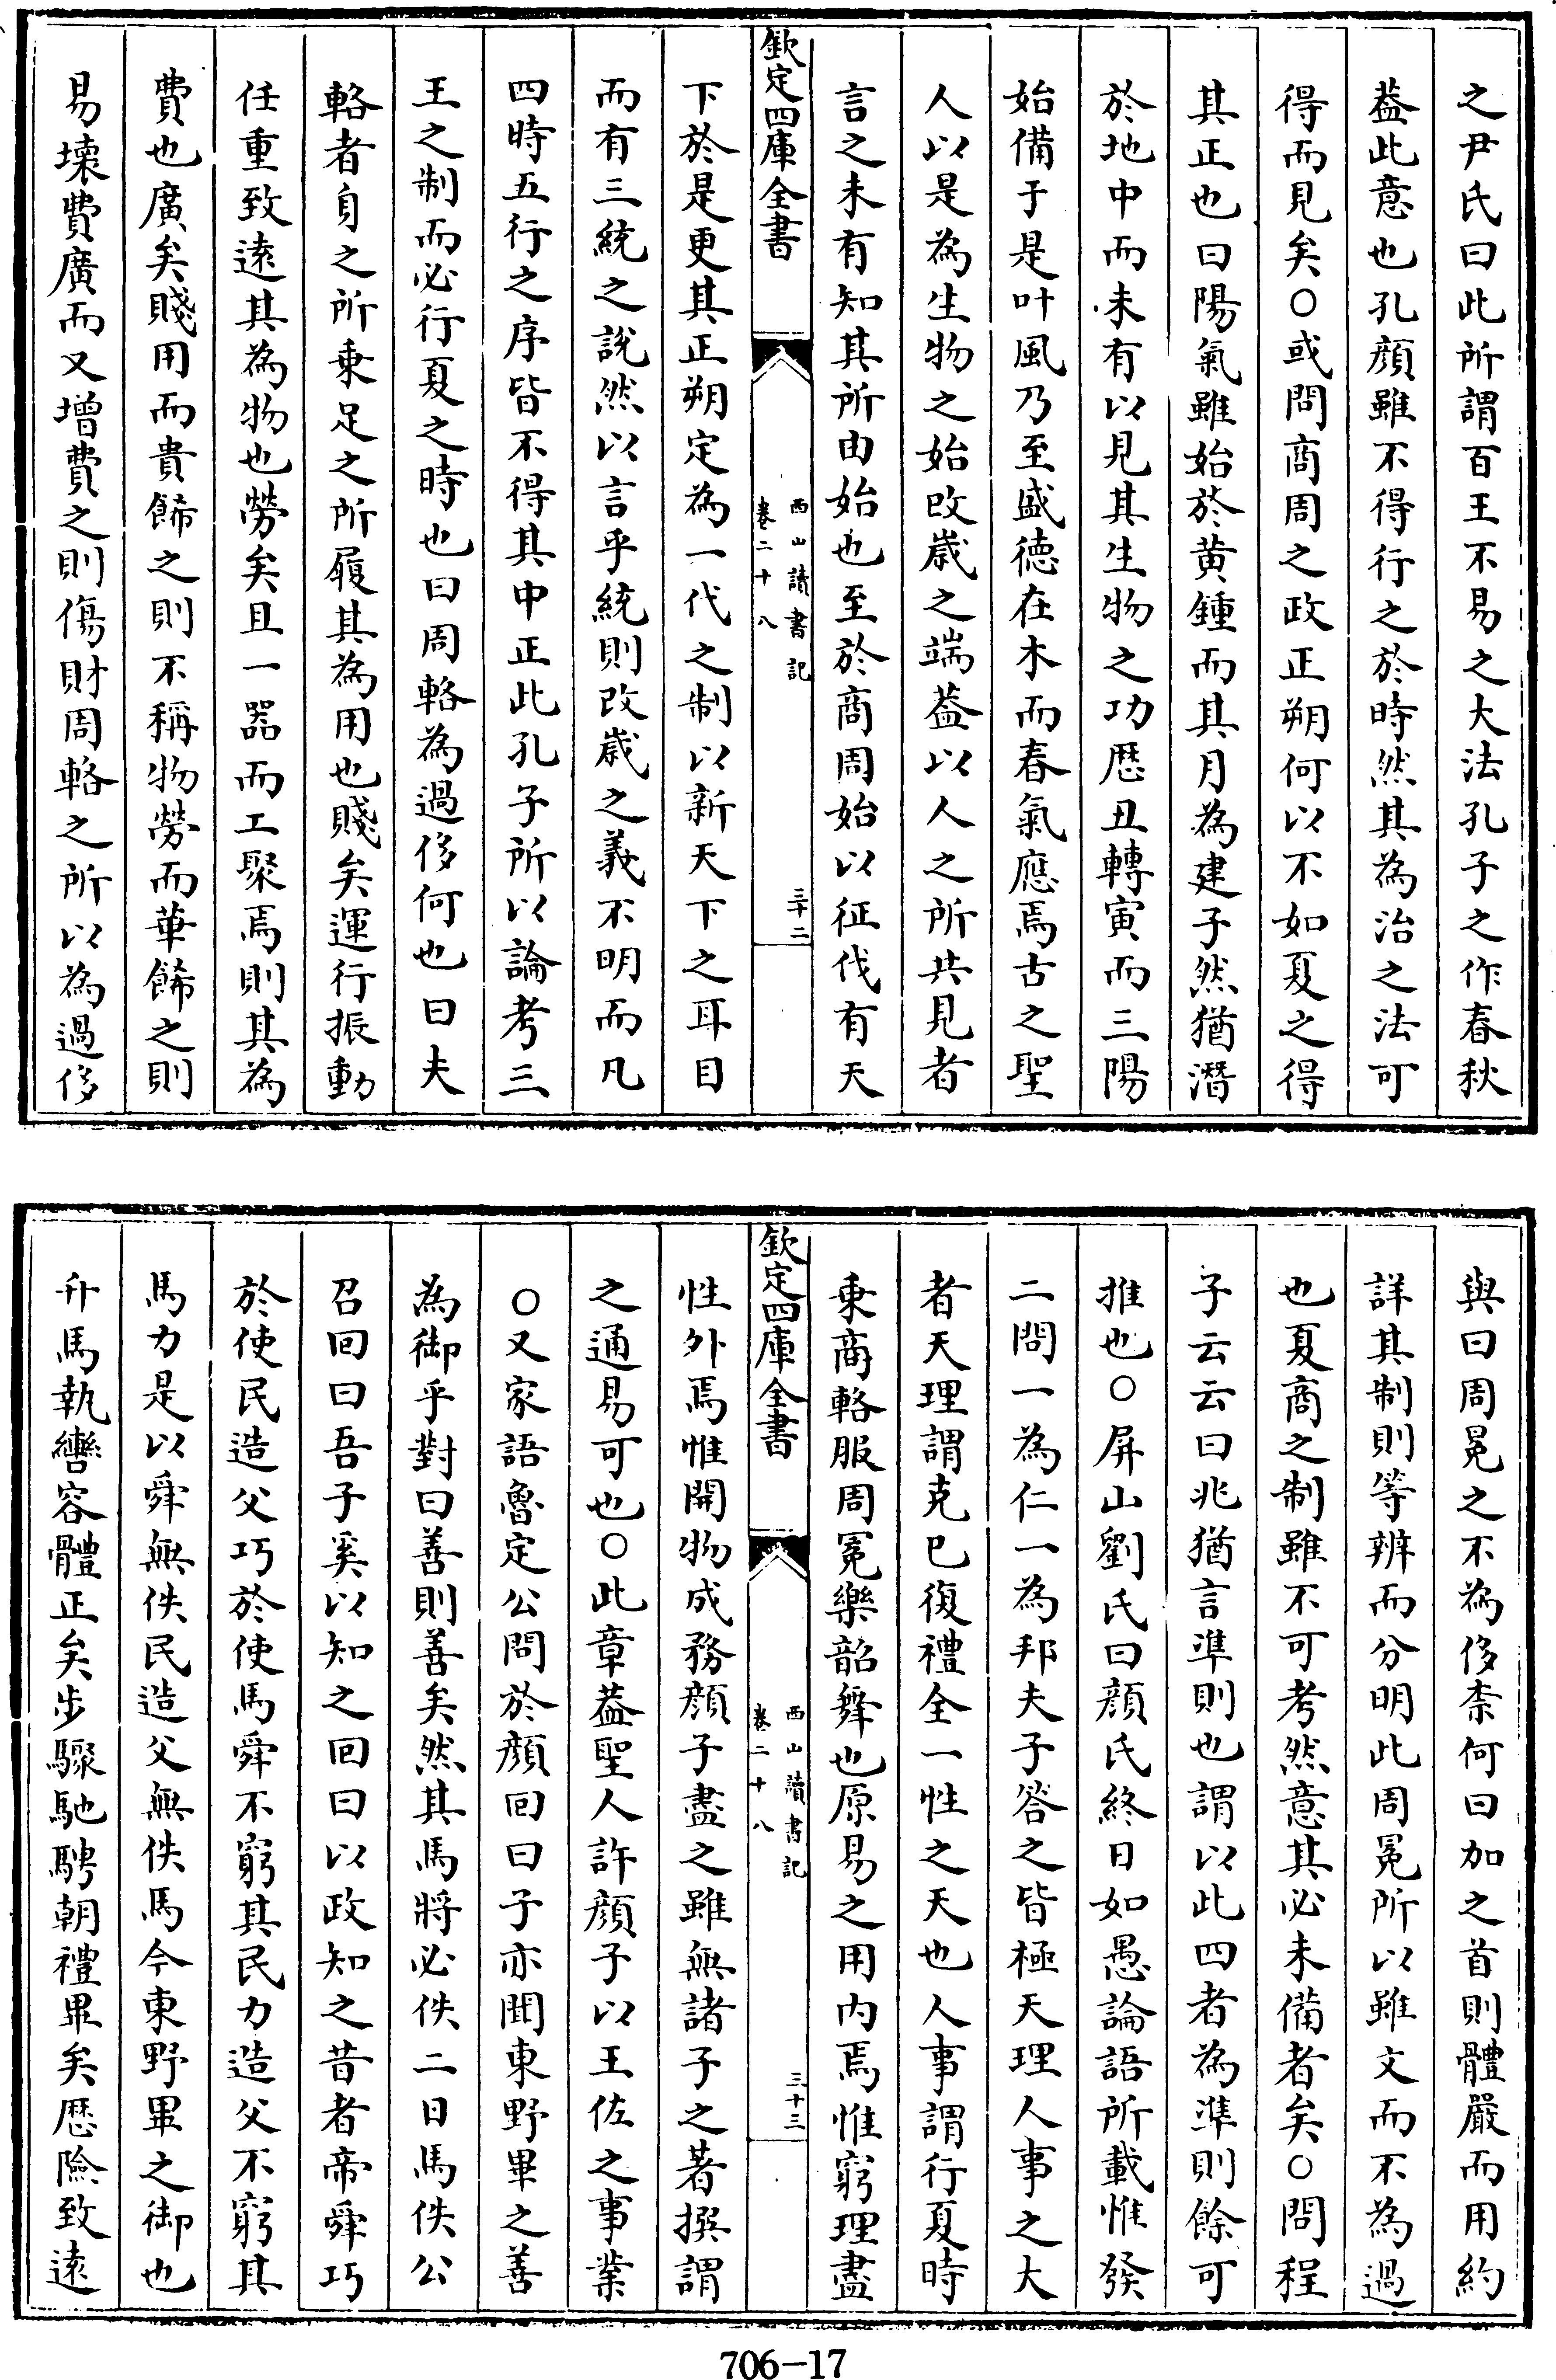 之尹氏曰此所謂百王不易之大法孔子之作春秋
葢此意也孔顔雖不得行之於時然其為治之法可
得而見矣○或問商周之政正朔何以不如夏之得
其正也曰陽氣雖始於黄鍾而其月為建子然猶潛
於地中而未有以見其生物之功厯丑轉寅而三陽
始備于是叶風乃至盛徳在木而春氣應焉古之聖
人以是為生物之始改嵗之端葢以人之所共見者
言之未有知其所由始也至於商周始以征伐有天
欽定四庫全書
西山讀書記
卷二十八
三十二
下於是更其正朔定為一代之制以新天下之耳目
而有三統之說然以言乎統則改嵗之義不明而凡
四時五行之序皆不得其中正此孔子所以論考三
王之制而必行夏之時也曰周輅為過侈何也曰夫
輅者身之所乗足之所履其為用也賤矣運行振動
任重致逺其為物也勞矣且一器而工聚焉則其為
費也廣矣賤用而貴餙之則不稱物勞而華餙之則
易壊費廣而又增費之則傷財周輅之所以為過侈
與曰周冕之不為侈柰何曰加之首則體嚴而用約
詳其制則等辨而分明此周冕所以雖文而不為過
也夏商之制雖不可考然意其必未備者矣○問程
子云云曰兆猶言凖則也謂以此四者為凖則餘可
推也○屏山劉氏曰顔氏終日如愚論語所載惟發
二問一為仁一為邦夫子答之皆極天理人事之大
者天理謂克已復禮全一性之天也人事謂行夏時
乗商輅服周冕樂韶舞也原易之用内焉惟窮理盡
欽定四庫全書
西山讀書記
卷二十八
三十三
性外焉惟開物成務顔子盡之雖無諸子之著撰謂
之通易可也○此章葢聖人許顔子以王佐之事業
○又家語魯定公問於顔回曰子亦聞東野畢之善
為御乎對曰善則善矣然其馬將必佚二日馬佚公
召回曰吾子奚以知之回曰以政知之昔者帝舜巧
於使民造父巧於使馬舜不窮其民力造父不窮其
馬力是以舜無佚民造父無佚馬今東野畢之御也
升馬執轡容體正矣步驟馳騁朝禮畢矣厯險致逺
706-17